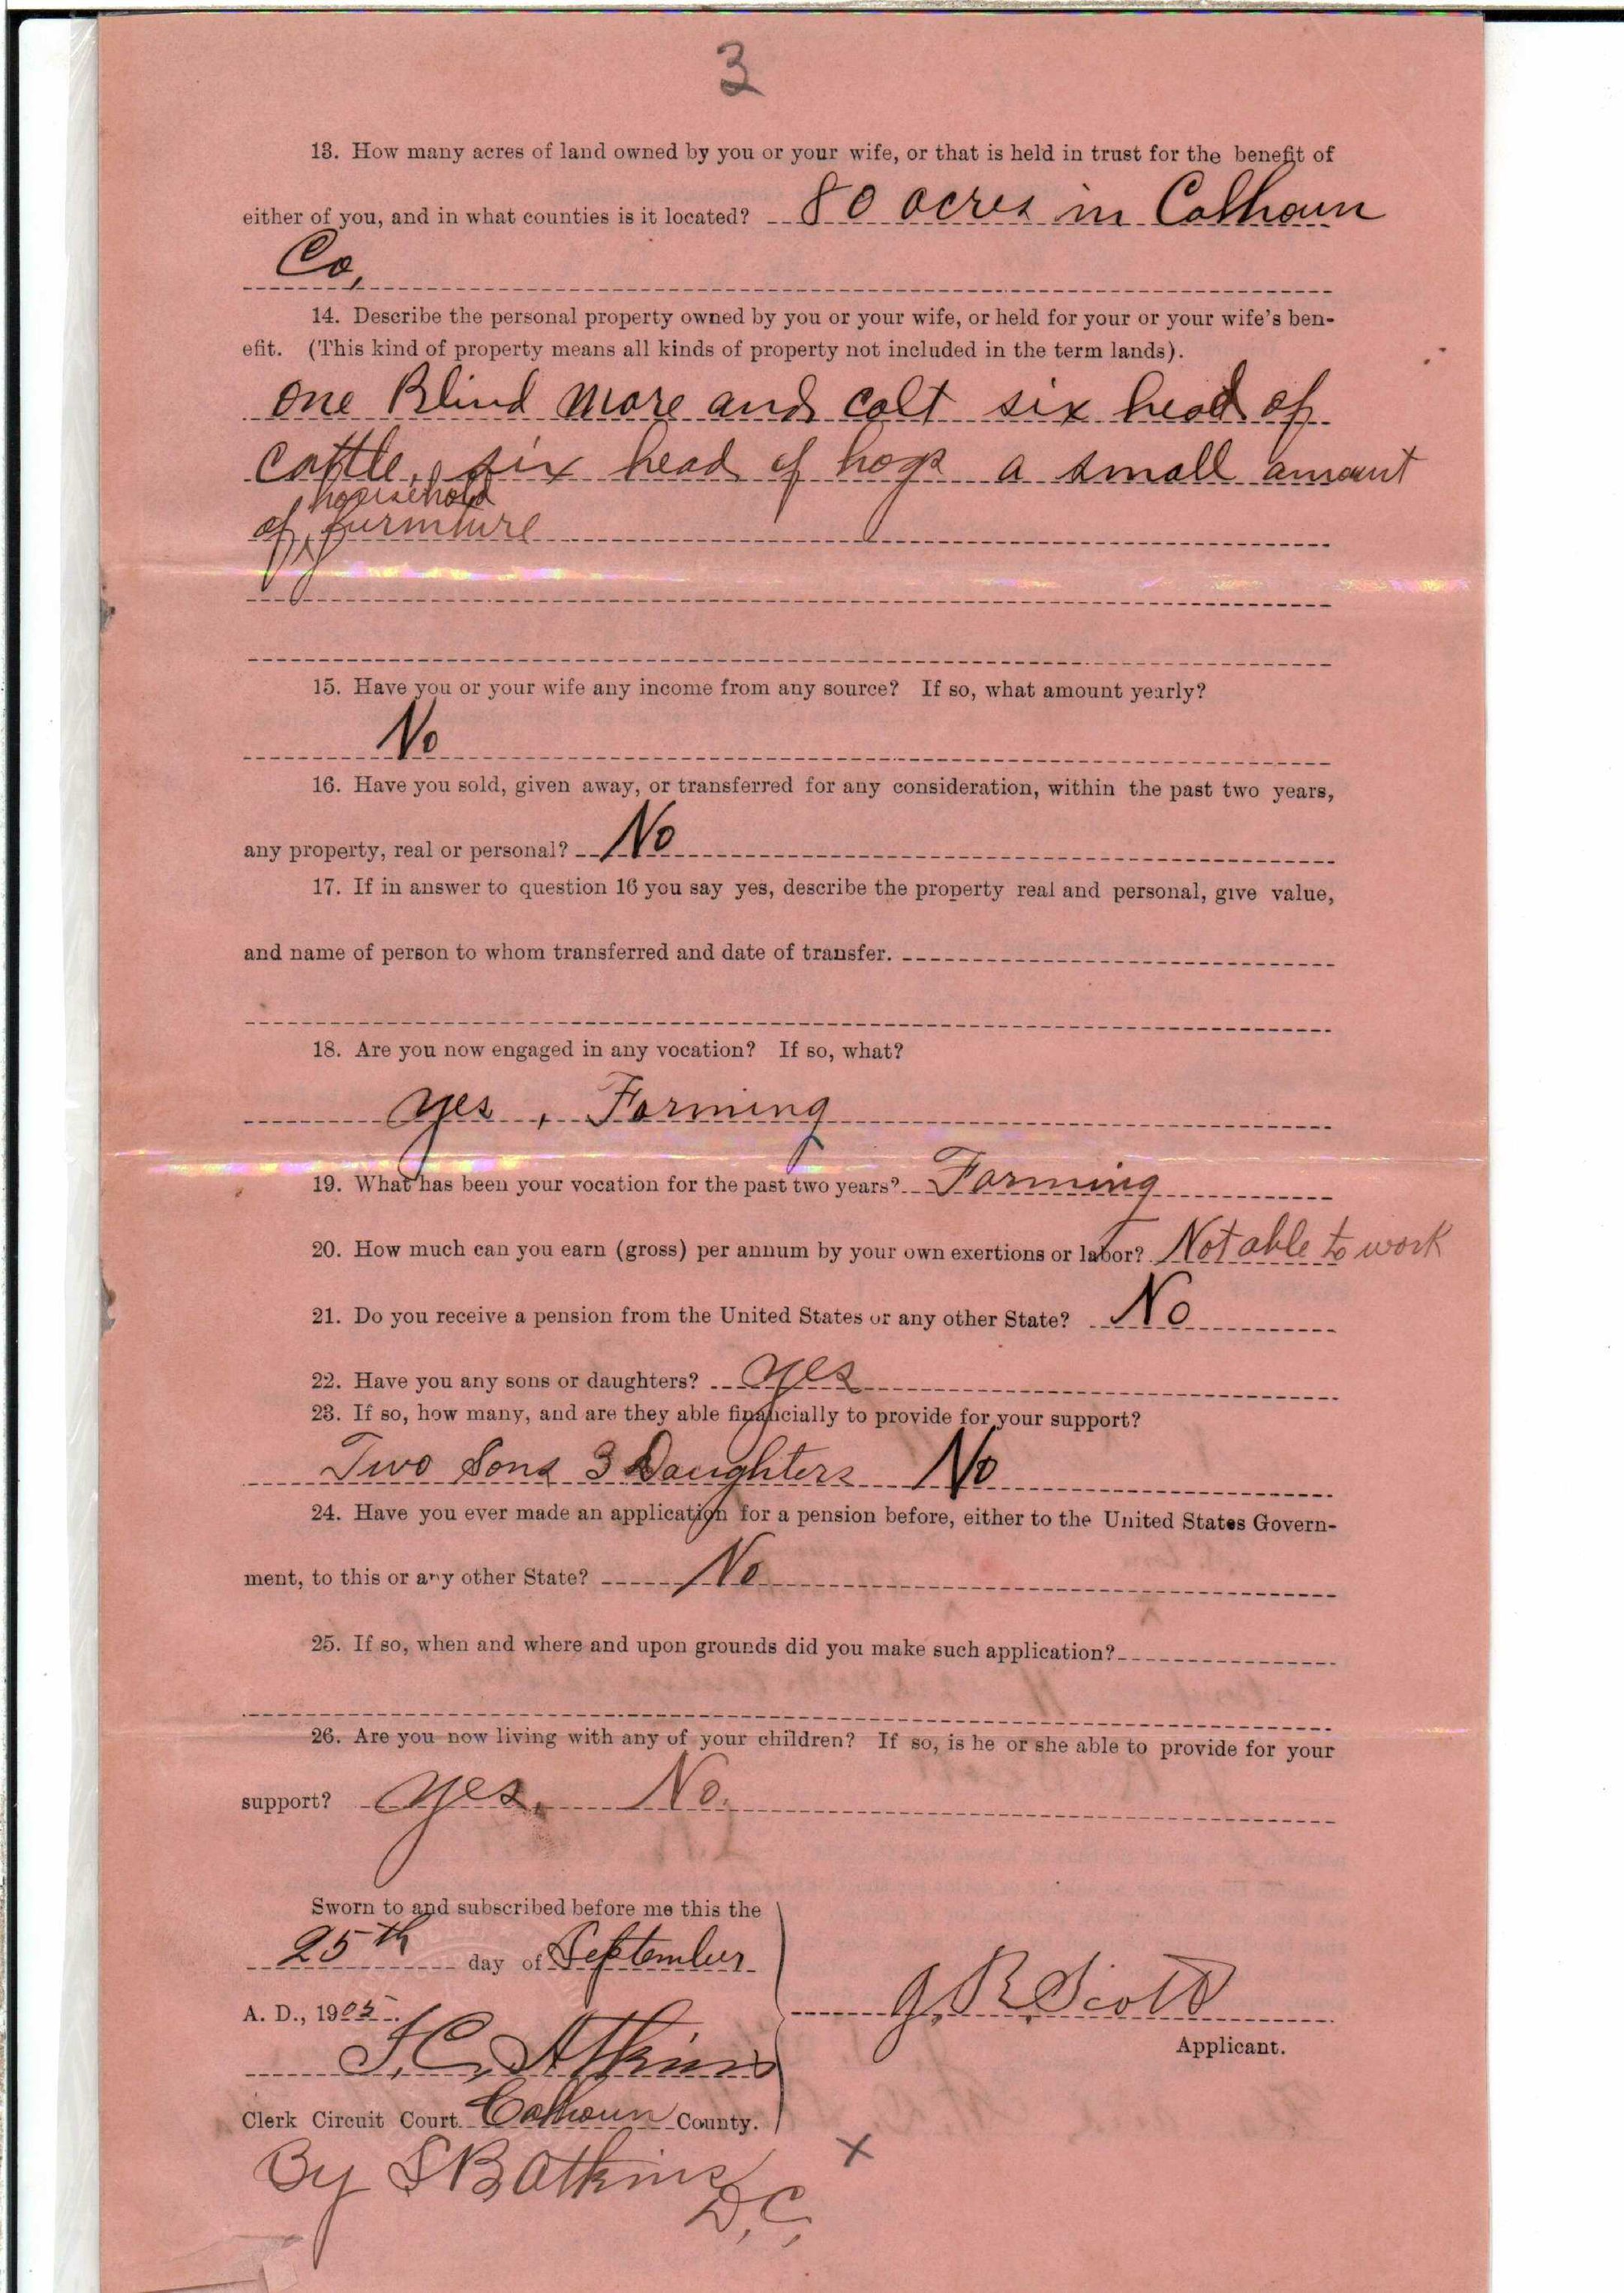 3
13. How many acres of land owned by you or your wife, or that is held in trust for the benefit of
either of you, and in what counties is it located? 80 acres in Calhoun
Co,
14. Describe the personal property owned by you or your wife, or held for your or your wife's ben-
efit. (This kind of property means all kinds of property not included in the term lands).
one Blind mare and colt six head of
cattle, six head of hogs a small amount
household
of furniture
15. Have you or your wife any income from any source? If so, what amount yearly?
No
16. Have you sold, given away, or transferred for any consideration, within the past two years,
any property, real or personal? No
17. If in answer to question 16 you say yes, describe the property real and personal, give value,
and name of person to whom transferred and date of transfer.
18. Are you now engaged in any vocation? If so, what?
yes, Farming
19. What has been your vocation for the past two years? Farming
20. How much can you earn (gross) per annum by your own exertions or labor? Not able to work
21. Do you receive a pension from the United States or any other State? No
22. Have you any sons or daughters? yes
23. If so, how many, and are they able financially to provide for your support?
Two Sons 3 Daughters No
24. Have you ever made an application for a pension before, either to the United States Govern-
ment, to this or any other State? No
25. If so, when and where and upon grounds did you make such application?
26. Are you now living with any of your children? If so, is he or she able to provide for your
support? yes. No.
Sworn to and subscribed before me this the
25th day of September
A. D., 1905.
J. R. Scott
Applicant.
J. C. Atkins
Clerk Circuit Court Calhoun County.
By S B Atkins
D.C.
X